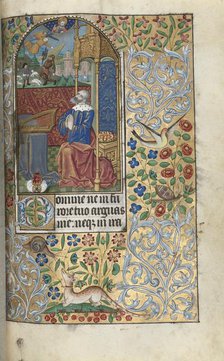 Domine ne in fu
rore tuo arguas
me: neq; in ira